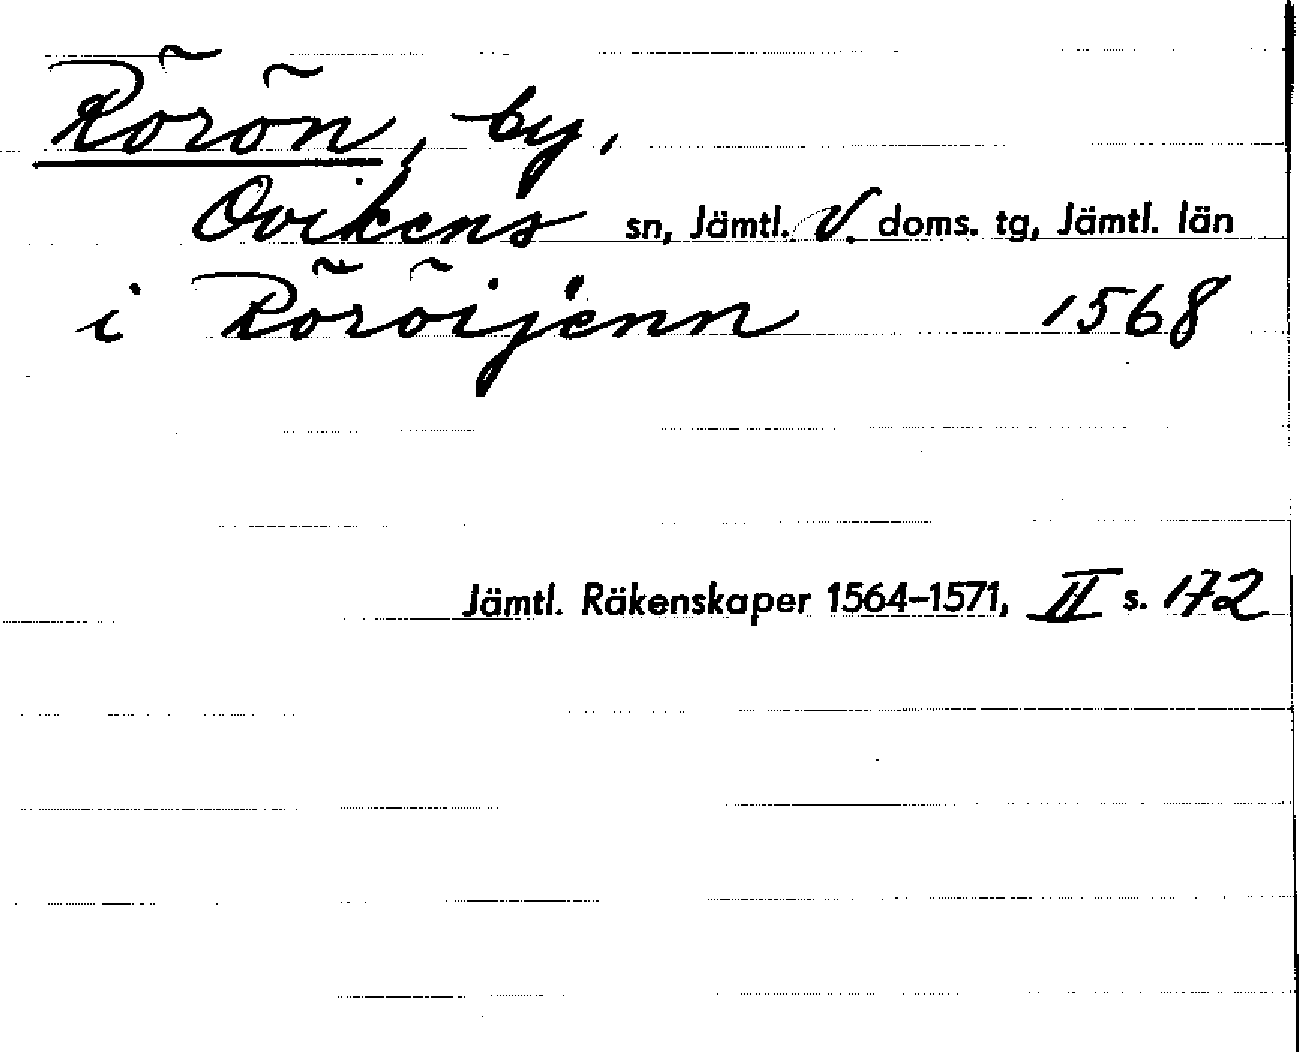 Rörön, by,
Ovikens sn, Jämtl. V. doms. tg, Jämtl. län
i Röröijenn 1568
Jämtl. Räkenskaper 1564-1571, II s. 172